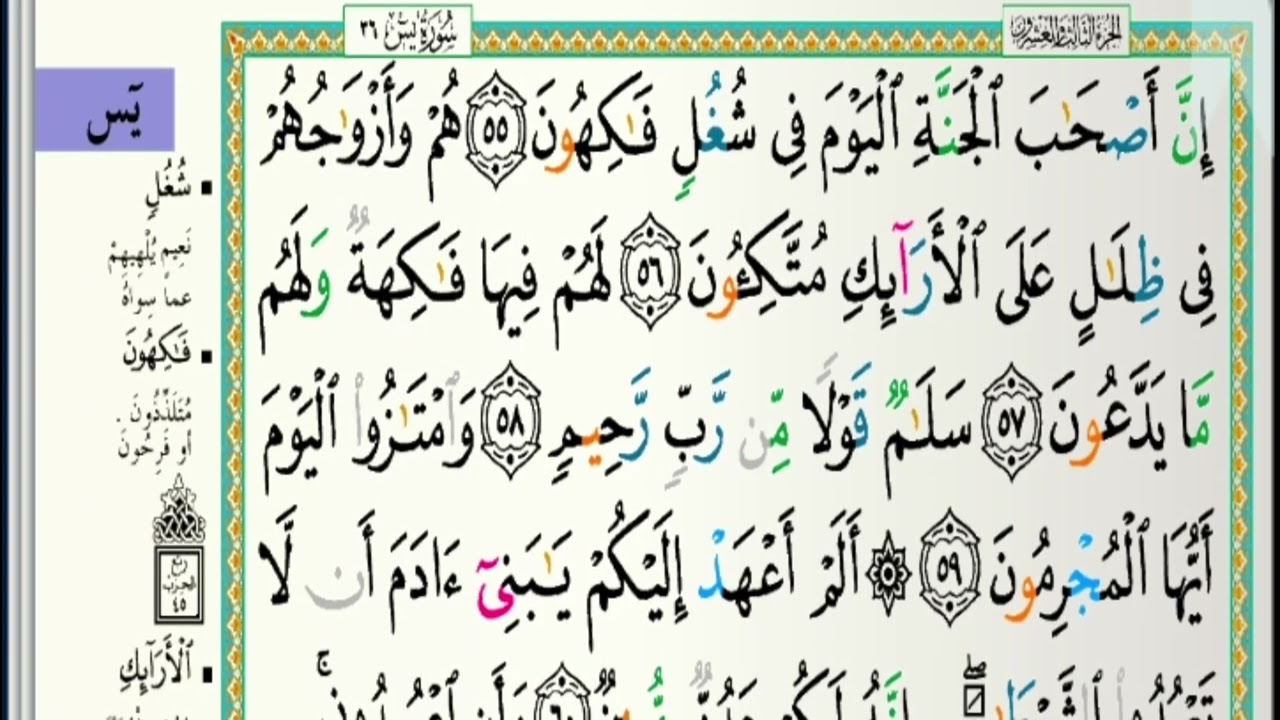 الجزء الثالث والعشرون
سُورَةُ يسٓ ٣٦
إِنَّ أَصْحَٰبَ ٱلْجَنَّةِ ٱلْيَوْمَ فِى شُغُلٍ فَٰكِهُونَ ٥٥ هُمْ وَأَزْوَٰجُهُمْ
فِى ظِلَٰلٍ عَلَى ٱلْأَرَآئِكِ مُتَّكِـُٔونَ ٥٦ لَهُمْ فِيهَا فَٰكِهَةٌ وَلَهُم
مَّا يَدَّعُونَ ٥٧ سَلَٰمٌ قَوْلًا مِّن رَّبٍّ رَّحِيمٍ ٥٨ وَٱمْتَٰزُوا۟ ٱلْيَوْمَ
أَيُّهَا ٱلْمُجْرِمُونَ ٥٩ ۞ أَلَمْ أَعْهَدْ إِلَيْكُمْ يَٰبَنِىٓ ءَادَمَ أَن لَّا
يٓس
شُغُلٍ
نَعِيم يُلْهِيهِمْ
عما سِوَاهُ
فَٰكِهُونَ
مُتَلَذِّذُونَ .
أو فَرِحُونَ
ربع
الحزب
٤٥
ٱلْأَرَآئِكِ